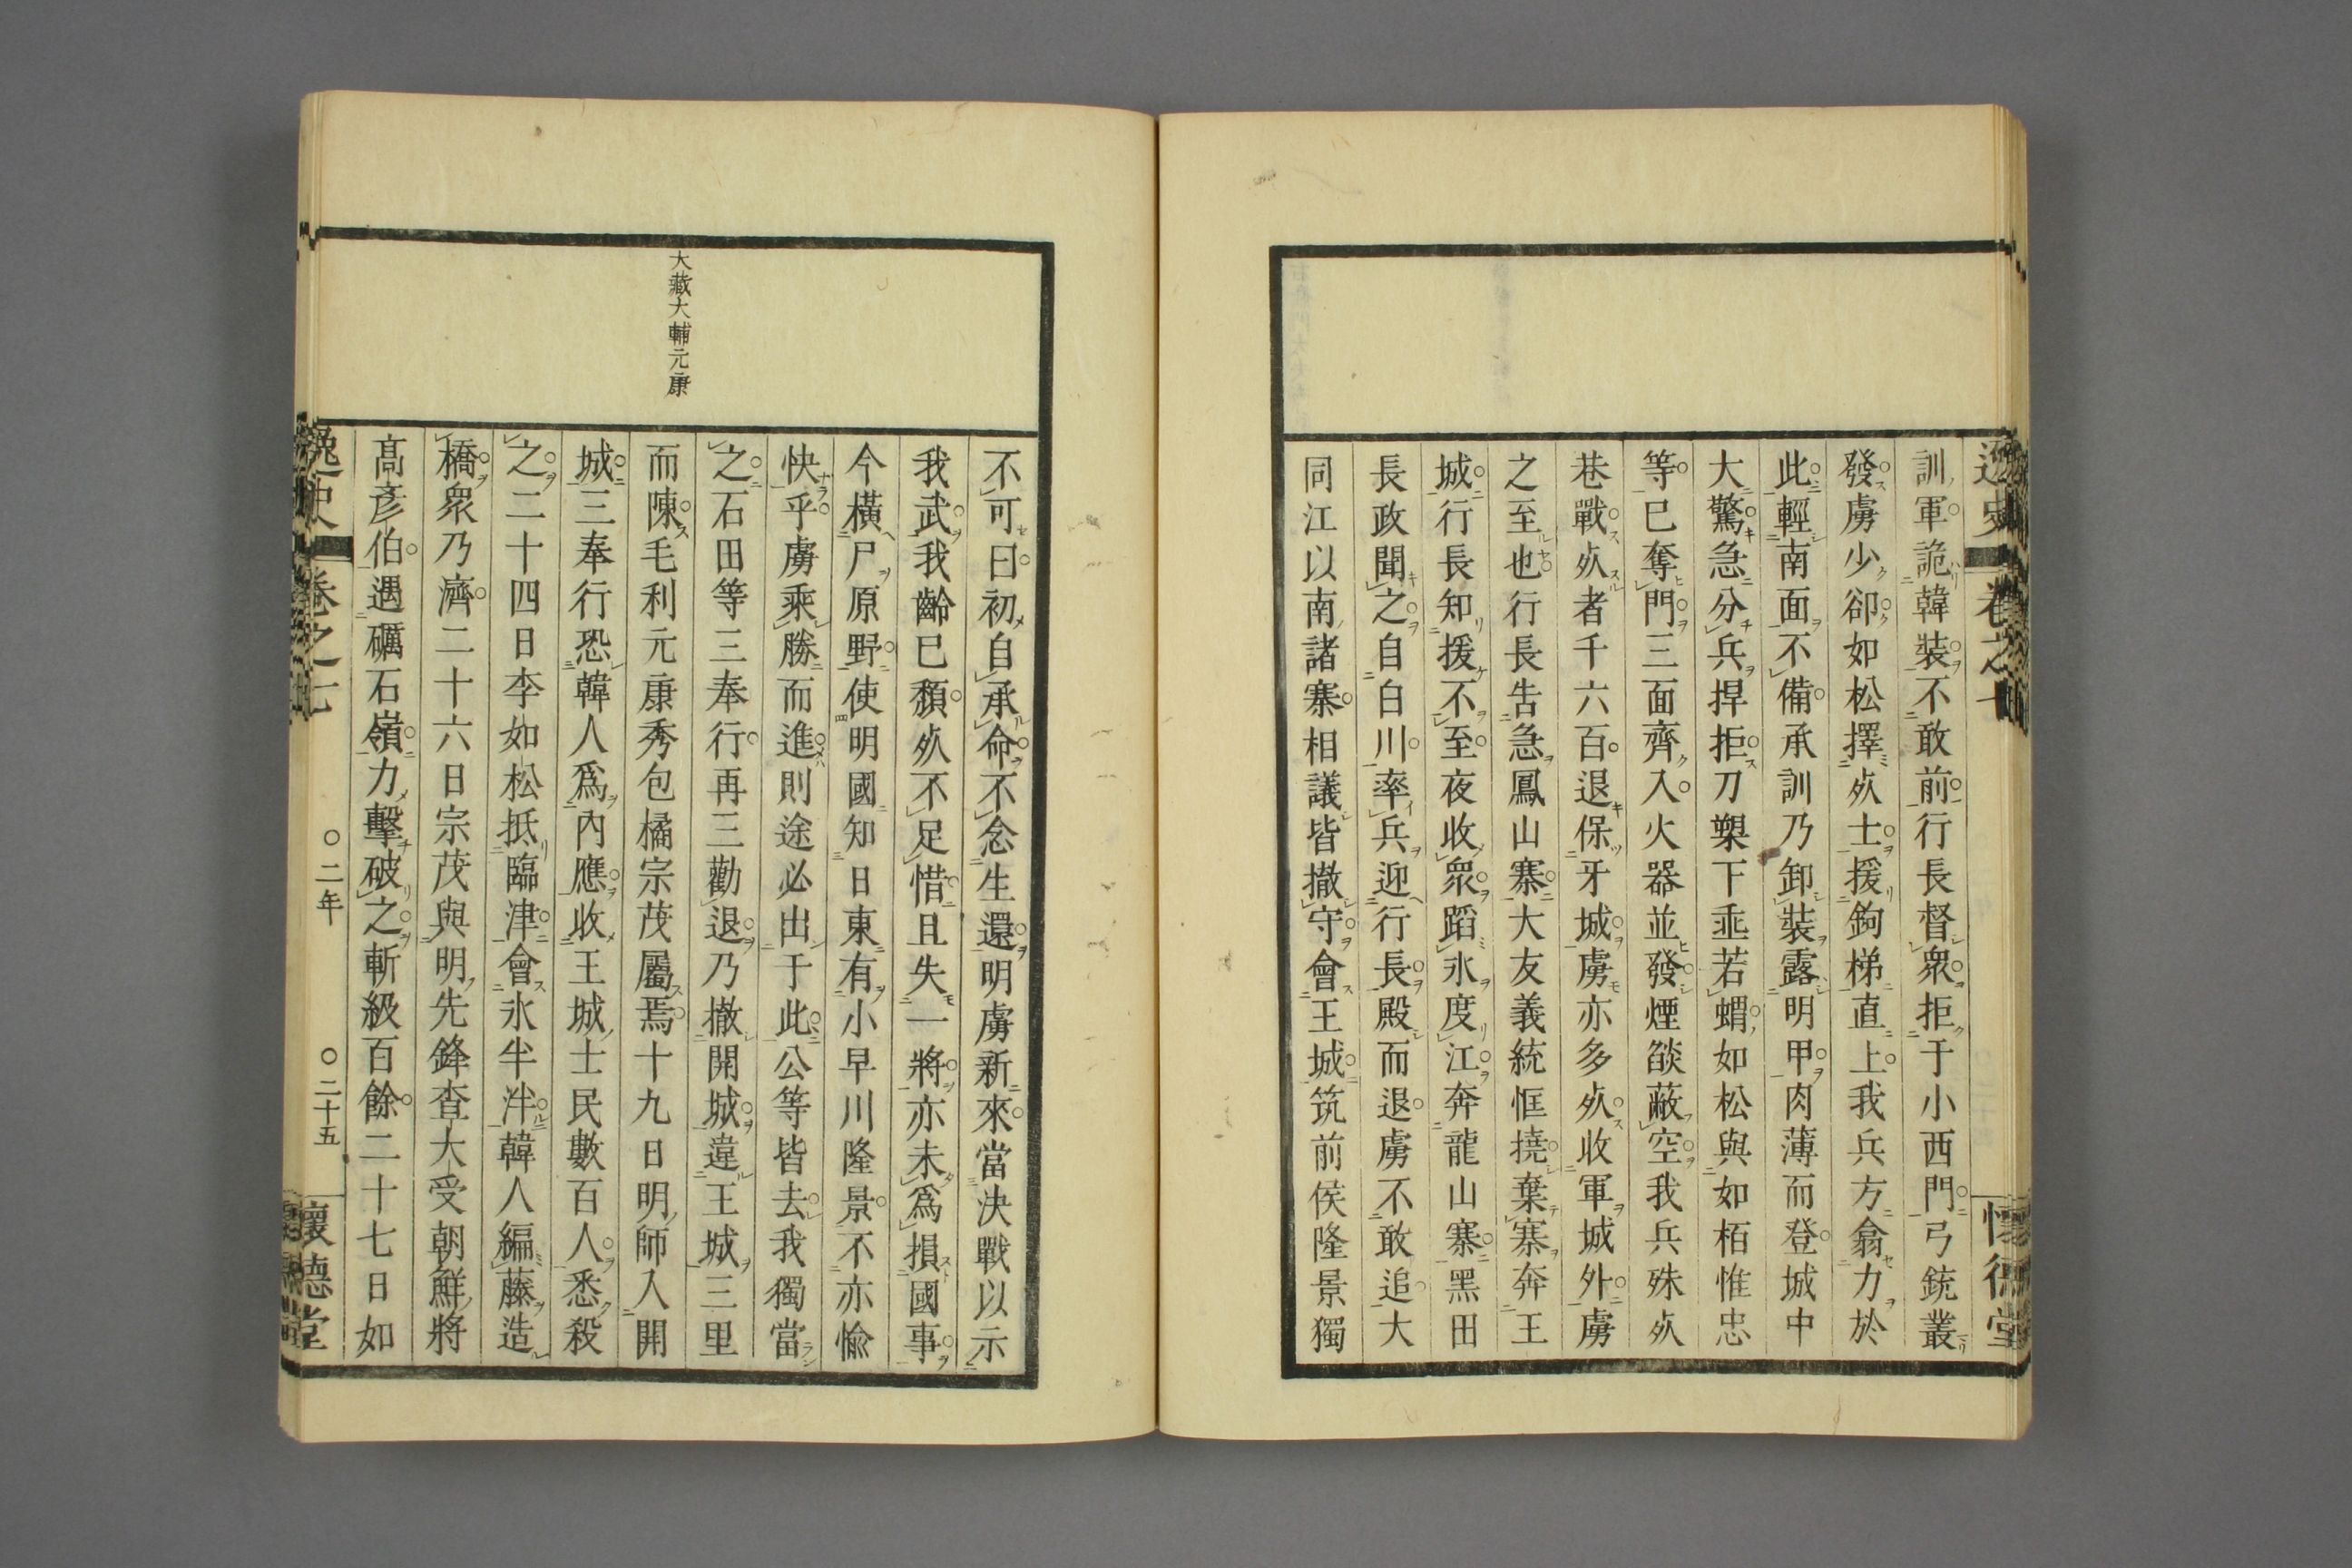 逸史 卷之七 懷德堂
訓軍詭韓裝不敢前行長督衆拒于小西門弓銃叢
發虜少卻如松擇死士援鉤梯直上我兵方翕力於
此輕南面不備承訓乃卸裝露明甲肉薄而登城中
大驚急分兵捍拒刀槊下垂若蝟如松與如栢惟忠
等已奪門三面齊入火器並發煙燄蔽空我兵殊死
巷戰死者千六百退保牙城虜亦多死收軍城外虜
之至也行長告急鳳山寨大友義統恇撓棄寨奔王
城行長知援不至夜收衆蹈氷度江奔龍山寨黑田
長政聞之自白川率兵迎行長殿而退虜不敢追大
同江以南諸寨相議皆撤守會王城筑前侯隆景獨
不可曰初自承命不念生還明虜新來當決戰以示
我武我齡已頹死不足惜且失一將亦未爲損國事
今橫尸原野使明國知日東有小早川隆景不亦愉
快乎虜乘勝而進則途必出于此公等皆去我獨當
之石田等三奉行再三勸退乃撤開城違王城三里
大藏大輔元康
而陳毛利元康秀包橘宗茂屬焉十九日明師入開
城三奉行恐韓人爲內應收王城士民數百人悉殺
之二十四日李如松抵臨津會氷半泮韓人編藤造
橋衆乃濟二十六日宗茂與明先鋒査大受朝鮮將
高彥伯遇礪石嶺力擊破之斬級百餘二十七日如
逸史 卷之七 〇二年 〇二十五 懷德堂